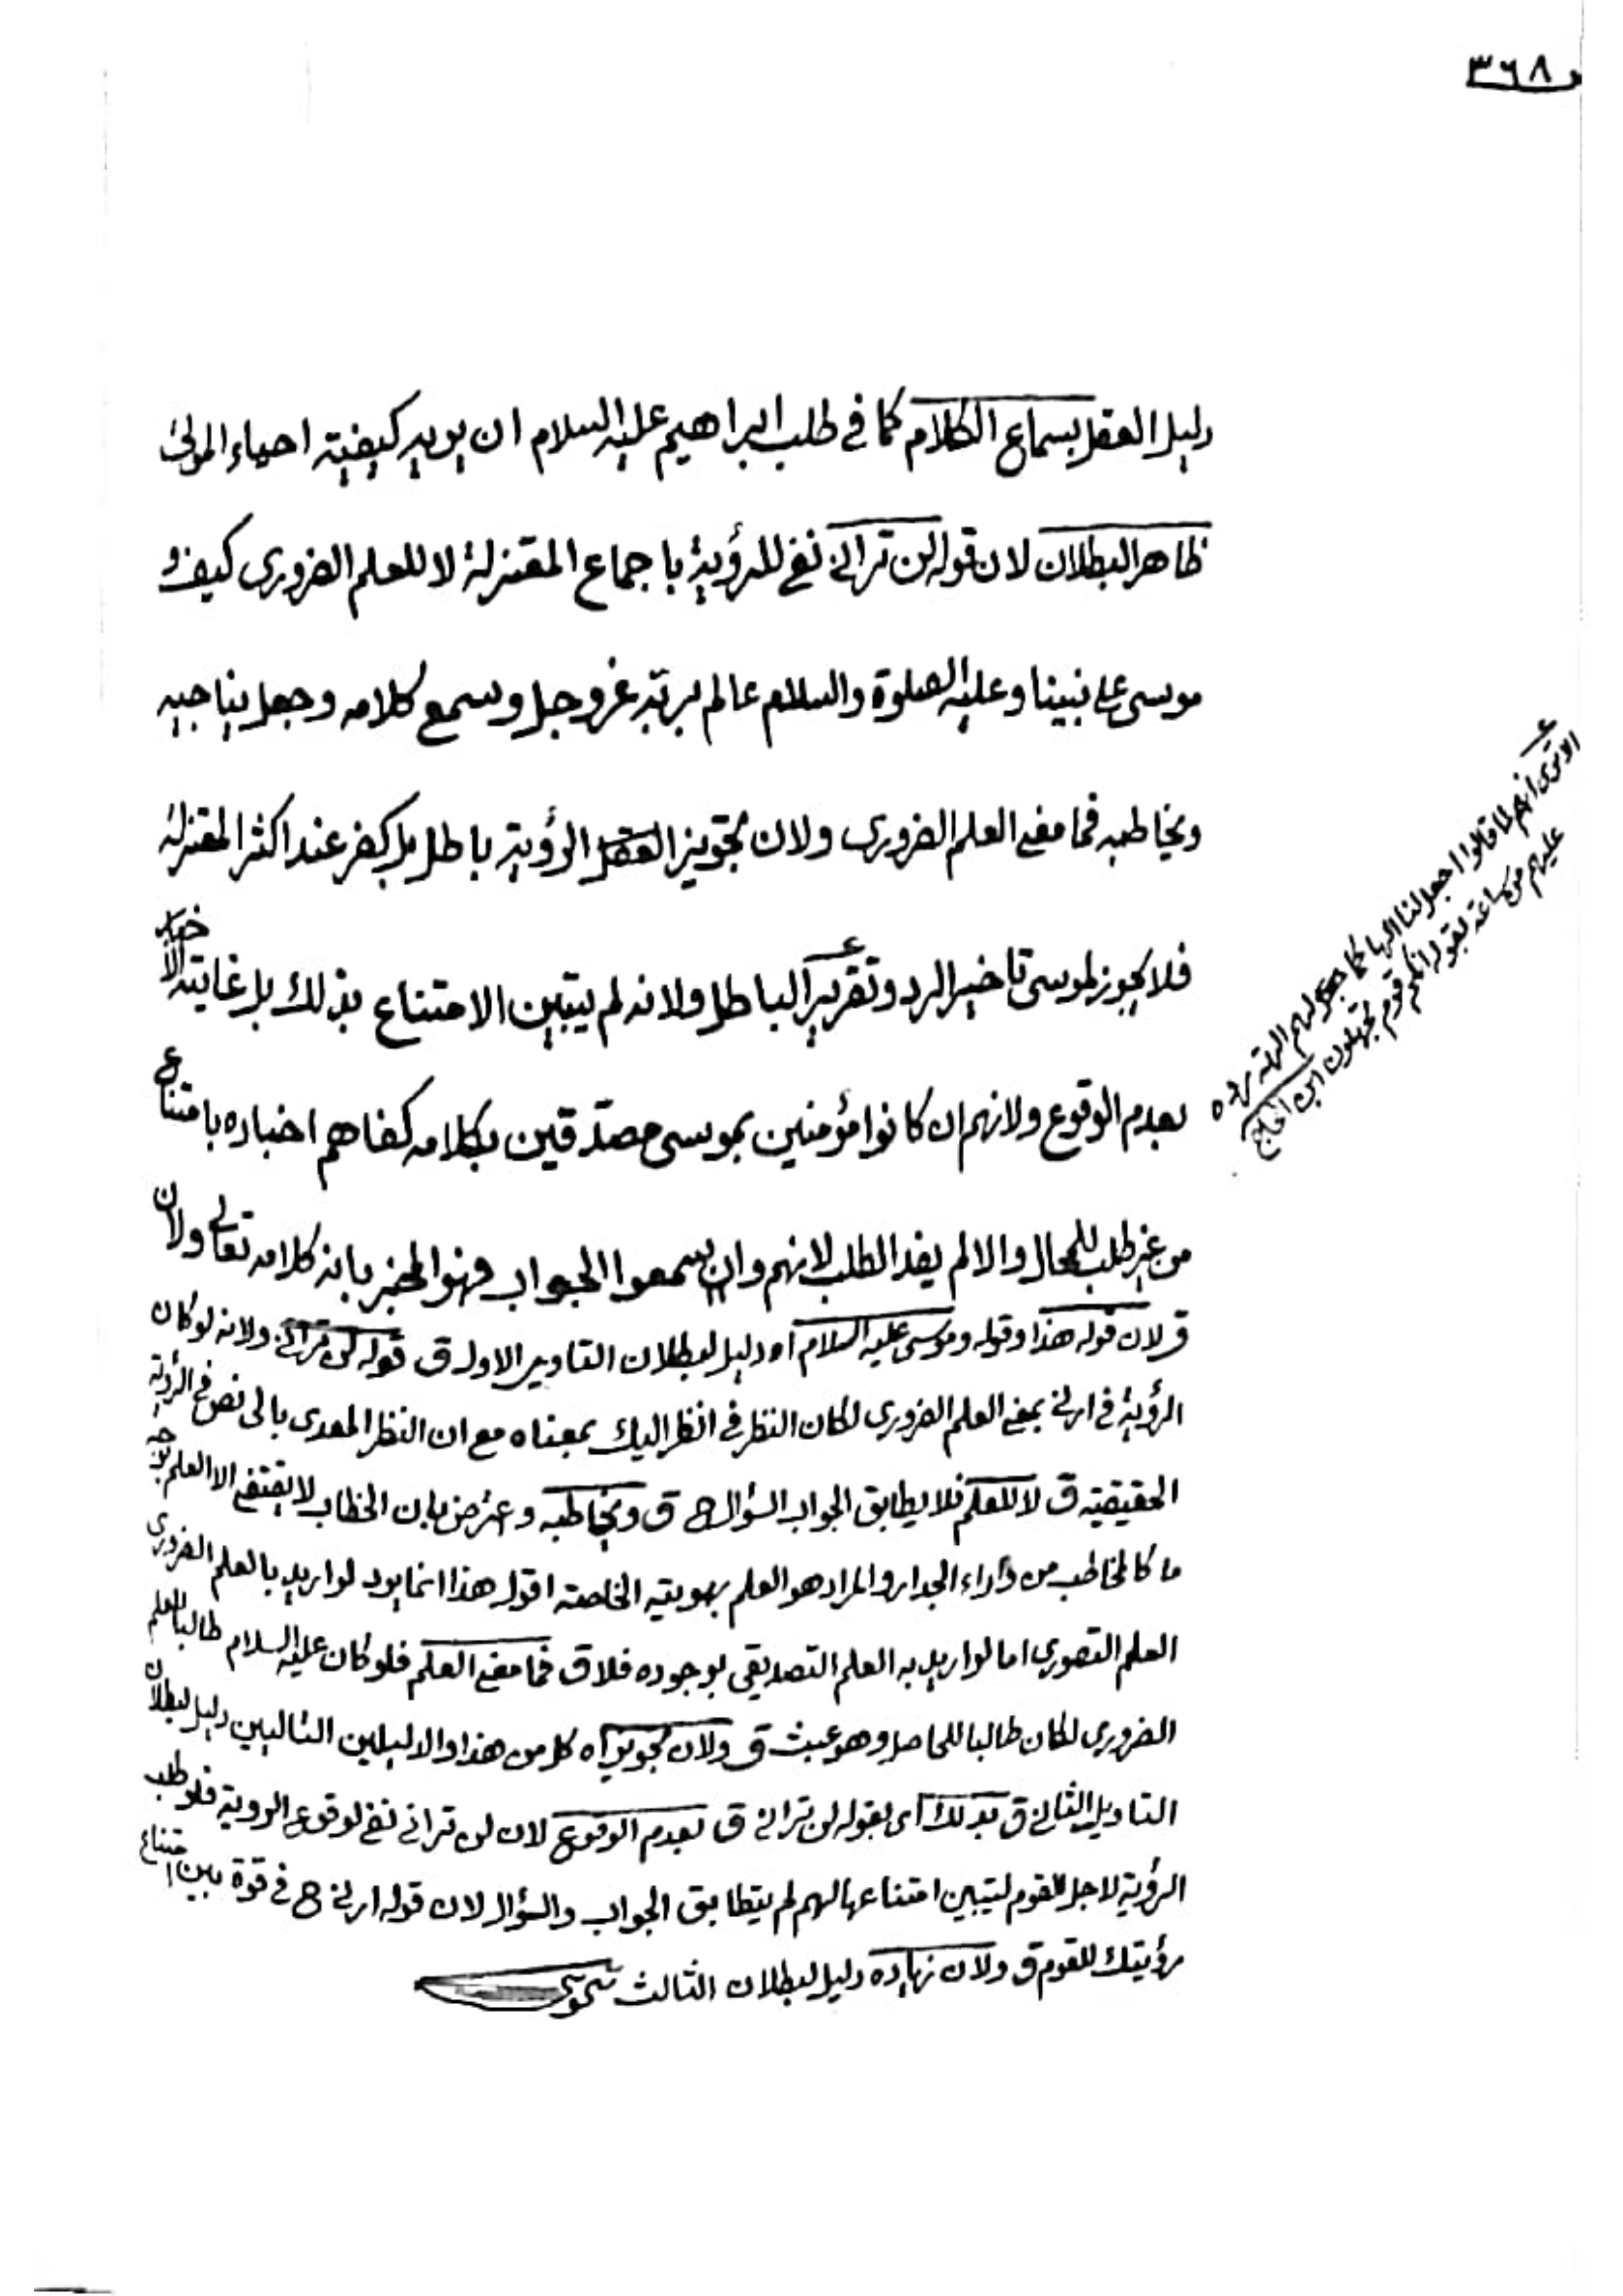 ٣٦٨
دليل العقل بسماع الكلام كما في طلب ابراهيم عليه السلام ان يريه كيفية احياء الموتى
ظاهر البطلان لان قوله لن ترانى نفي للرؤية باجماع المعتزلة لا للعلم الضرورى كيف و
موسى على نبينا وعليه الصلوة والسلام عالم بربه عز وجل وسمع كلامه وجعل يناجيه
ويخاطبه فما معنى العلم الضرورى ولان تجويز الرؤية باطل بل كفر عند اكثر المعتزلة
فلا يجوز لموسى تاخير الرد وتقرير الباطل ولانه لم يتبين الامتناع بذلك بل غايته الاخبار
بعدم الوقوع ولانهم ان كانوا مؤمنين بموسى مصدّقين بكلامه كفاهم اخباره بامتناع
من غير طلب للمحال والا لم يفد الطلب لانهم وان سمعوا الجواب فهو المخبر بانه كلامه تعالى ولان
ق لان قوله هذا وقوله وموسى عليه السلام اه دليل لبطلان التاويل الاول ق قوله لن ترانى ولانه لو كان
الرؤية في ارنى بمعنى العلم الضرورى لكان النظر في انظر اليك بمعناه مع ان النظر المعدى بالى نص في الرؤية
الحقيقية ق لا للعلم فلا يطابق الجواب السؤال ح ق ويخاطبه وعترض بان الخطاب لا يقتضى الا العلم بوجه
ما كالمخاطب من وراء الجدار والمراد هو العلم بهويته الخاصة اقول هذا انما يرد لو اريد بالعلم الضرورى
العلم التصورى اما لو اريد به العلم التصديقى بوجوده فلا ق فما معنى العلم فلو كان عليه السلام طالبا للعلم
الضرورى لكان طالبا للحاصل وهو عبث ق ولان تجويز اه كل من هذا والدليلين التاليين دليل لبطلان
التاويل الثانى ق بذلك اى بقوله لن ترانى ق بعدم الوقوع لان لن ترانى نفى لوقوع الروية فلو طلب
الرؤية لاجل القوم ليتبين امتناعها لهم لم يتطابق الجواب والسؤال لان قوله ارنى ح في قوة بين امتناع
رؤيتك للقوم ق ولان نهاده دليل لبطلان الثالث
الا ترى انهم لما قالوا اجعل لنا الها كما لهم الهة رده
عليهم من ساعته بقوله انكم قوم تجهلون ابن